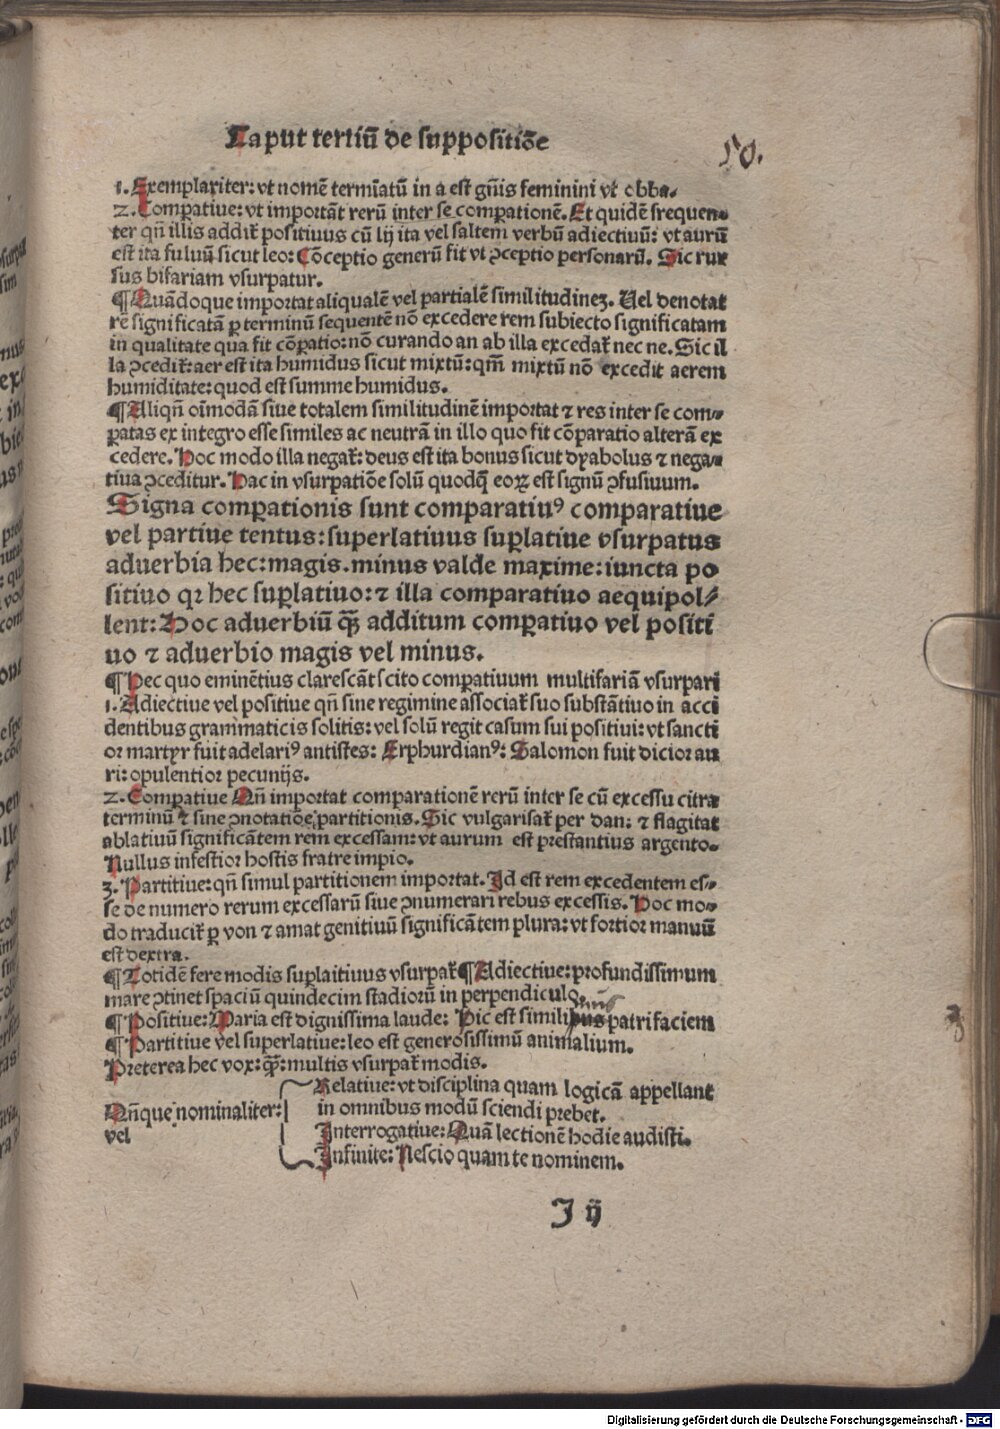 Caput tertiū de suppositiōe
50.
1. Exemplariter: vt nomē termīatū in a est gn̄is feminini vt obba.
2. Comꝑatiue: vt importāt rerū inter se comꝑationē. Et quidē frequen⸗
ter qn̄ illis addit᷑ positiuus cū lij ita vel saltem verbū adiectiuū: vt aurū
est ita fuluū sicut leo: Cōceptio generū fit vt ꝯceptio personarū. Sic rur
sus bifariam vsurpatur.
¶ Quādoque importat aliqualē vel partialē similitudineꝫ. Uel denotat
rē significatā ꝑ terminū sequentē nō excedere rem subiecto significatam
in qualitate qua fit cōꝑatio: nō curando an ab illa excedat᷑ nec ne. Sic il
la ꝯcedit᷑: aer est ita humidus sicut mixtū: qm̄ mixtū nō excedit aerem
humiditate: quod est summe humidus.
¶ Aliqn̄ oīmodā siue totalem similitudinē importat ⁊ res inter se com⸗
ꝑatas ex integro esse similes ac neutrā in illo quo fit cōparatio alterā ex
cedere. Hoc modo illa negat᷑: deus est ita bonus sicut dyabolus ⁊ nega⸗
tiua ꝯceditur. Hac in vsurpatiōe solū quodq̄ eoꝝ est signū ꝯfusiuum.
Signa comꝑationis sunt comparatiuꝰ comparatiue
vel partiue tentus: superlatiuus suꝑlatiue vsurpatus
aduerbia hec: magis. minus valde maxime: iuncta po
sitiuo qꝛ hec suꝑlatiuo: ⁊ illa comparatiuo aequipol⸗
lent: Hoc aduerbiū qꝫ̄ additum comꝑatiuo vel positi
uo ⁊ aduerbio magis vel minus.
¶ Hec quo eminētius clarescāt scito comꝑatiuum multifariā vsurpari
1. Adiectiue vel positiue qn̄ sine regimine associat᷑ suo substātiuo in acci
dentibus grammaticis solitis: vel solū regit casum sui positiui: vt sancti
or martyr fuit adelariꝰ antistes: Erphurdianꝰ: Salomon fuit dicior au
ri: opulentior pecunijs.
2. Comꝑatiue Qn̄ importat comparationē rerū inter se cū excessu citra
terminū ⁊ sine ꝯnotatiōe partitionis. Sic vulgarisat᷑ per dan: ⁊ flagitat
ablatiuū significātem rem excessam: vt aurum est prestantius argento.
Nullus infestior hostis fratre impio.
3. Partitiue: qn̄ simul partitionem importat. Id est rem excedentem es⸗
se de numero rerum excessarū siue ꝯnumerari rebus excessis. Hoc mo⸗
do traducit᷑ ꝑ von ⁊ amat genitiuū significātem plura: vt fortior manuū
est dextra.
¶ Totidē fere modis suꝑlaitiuus vsurpat᷑ ¶ Adiectiue: profundissimum
mare ꝯtinet spaciū quindecim stadiorū in perpendiculo.
¶ Positiue: Maria est dignissima laude: Hic est similibus patri faciem
¶ Partitiue vel superlatiue: leo est generosissimū animalium.
Preterea hec vox: qꝫ̄: multis vsurpat᷑ modis.
Relatiue: vt disciplina quam logicā appellant
Qn̄que nominaliter: in omnibus modū sciendi prebet.
vel Interrogatiue: Quā lectionē hodie audisti.
Infinite: Nescio quam te nominem.
J ij
Digitalisierung gefördert durch die Deutsche Forschungsgemeinschaft - DFG